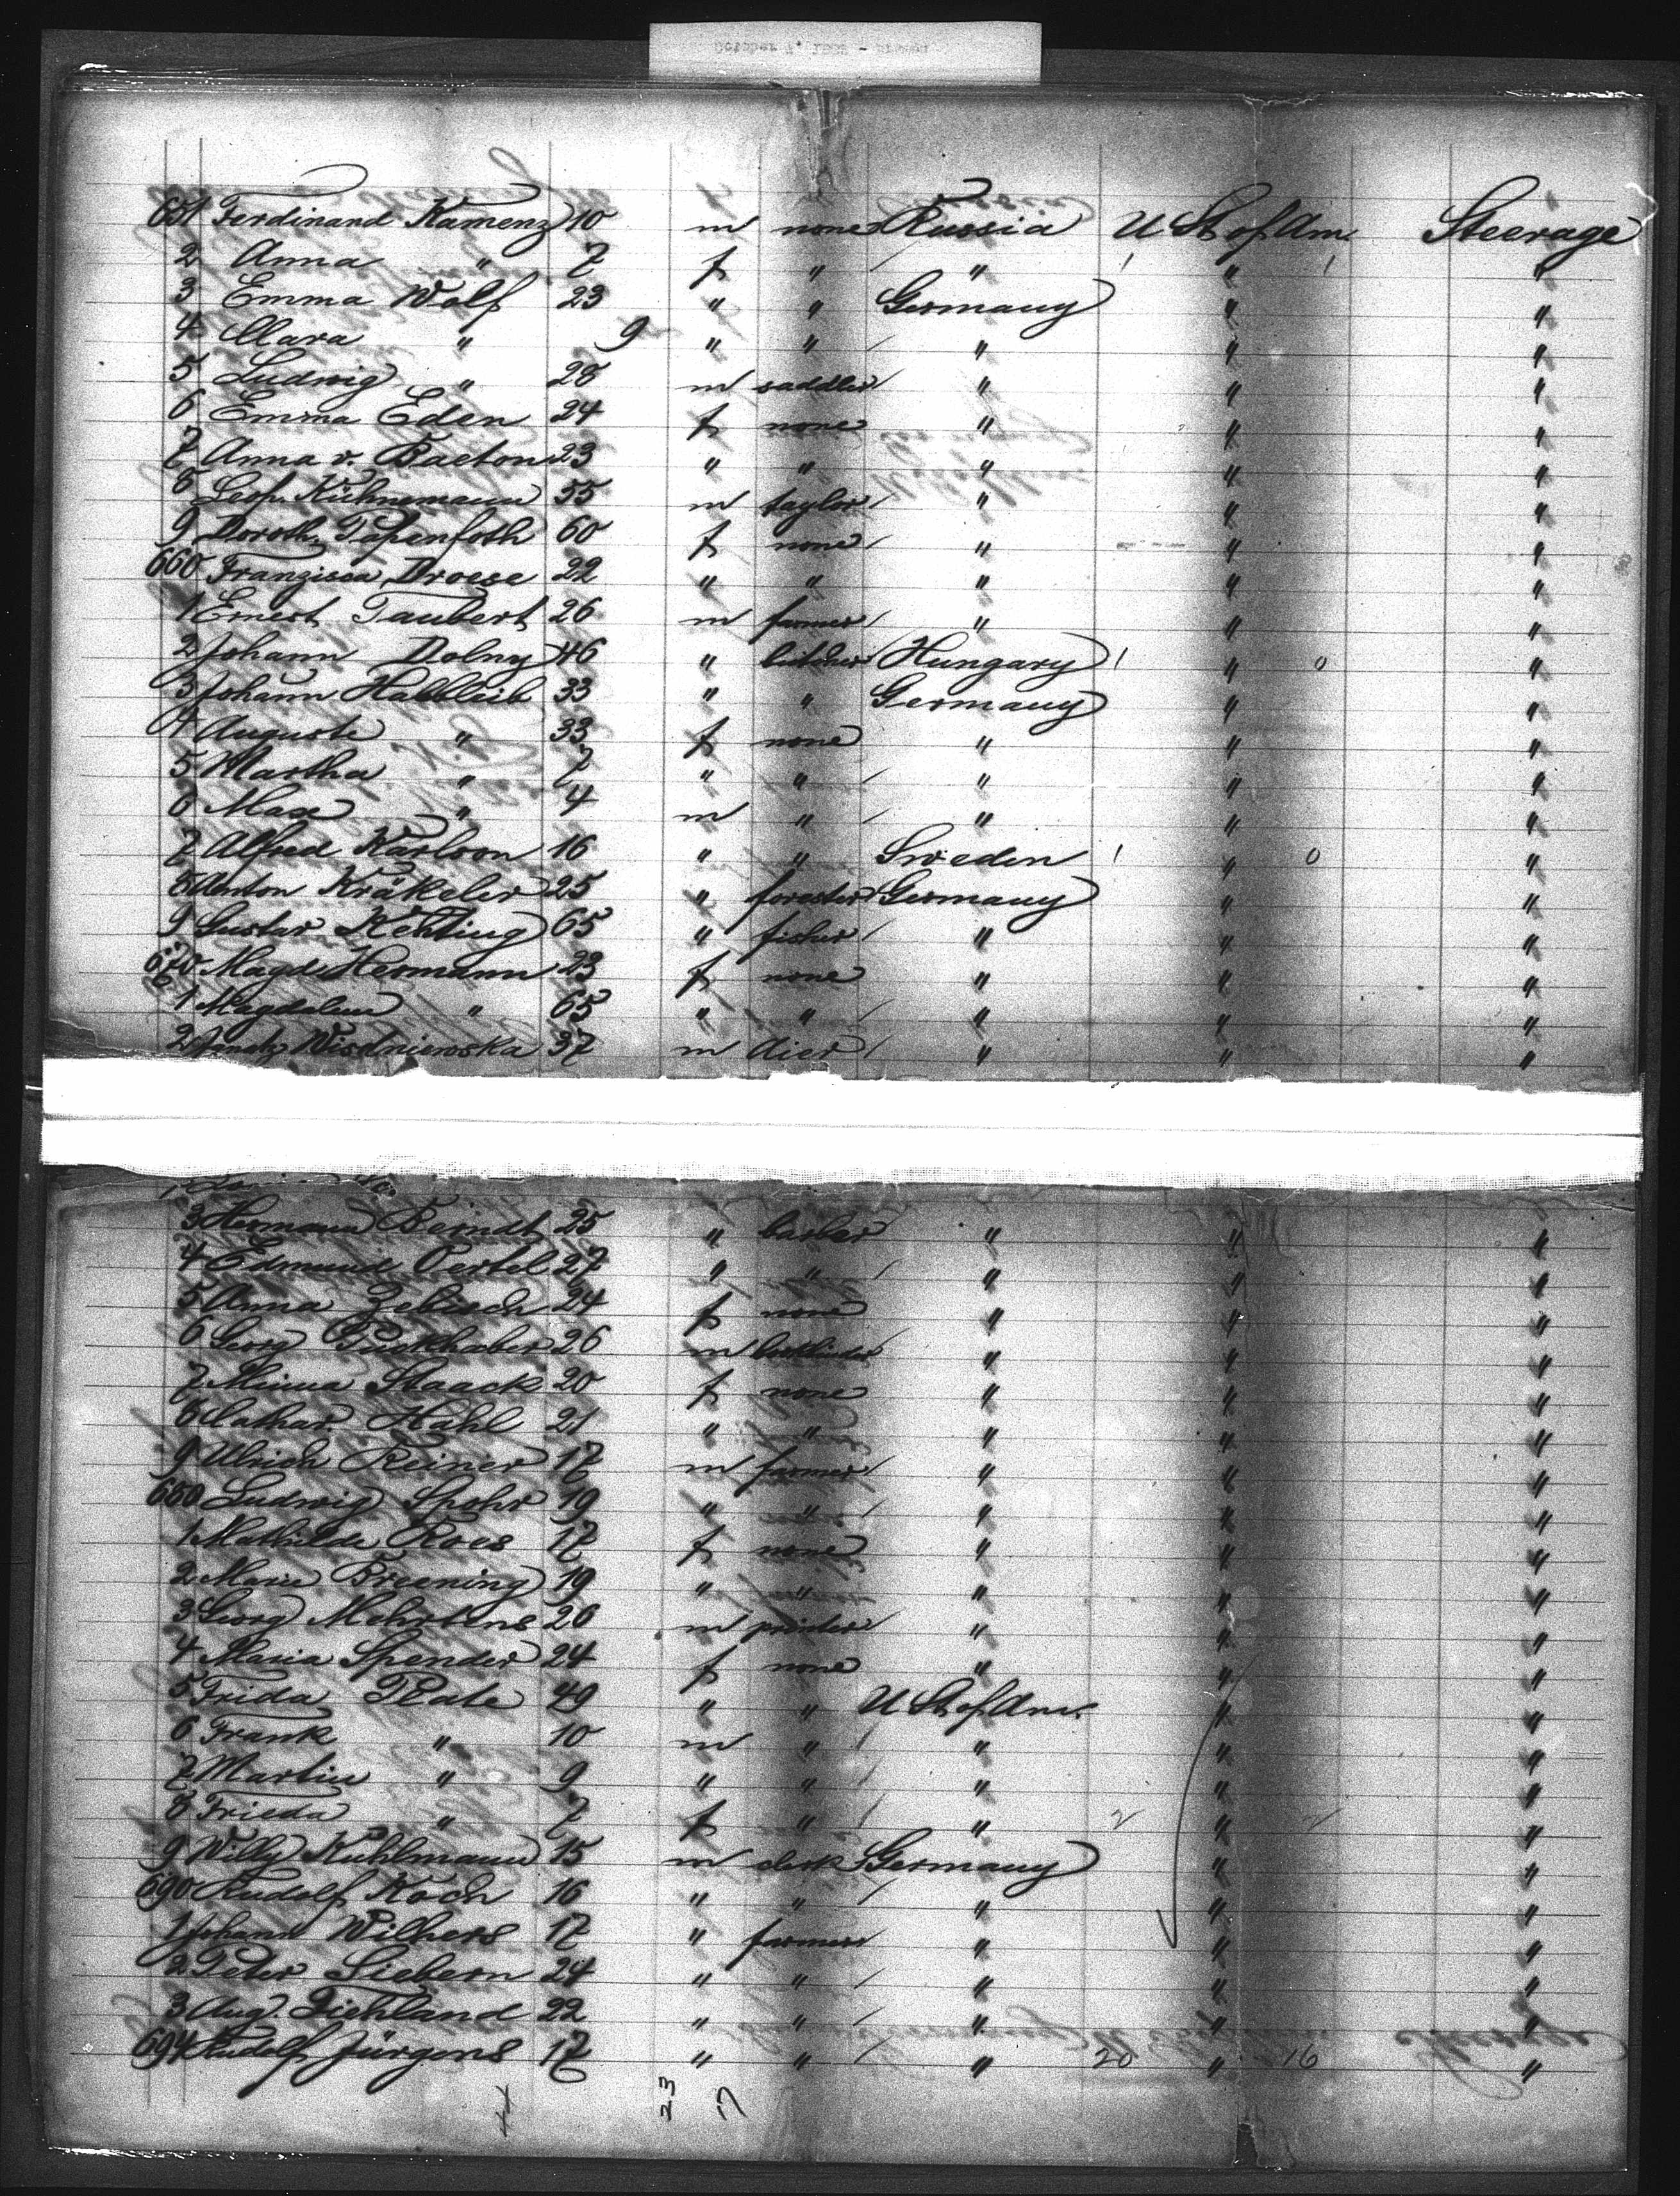 651 Ferdinand Kamenz 10 m none Russia U St of Am. Steerage
2 Anna " 7 f " " " "
3 Emma Wolf 23 " " Germany " "
4 Clara " 9 " " " " "
5 Ludwig " 28 m saddler " " "
6 Emma Eden 24 f none " " "
7 Anna v. Baeton 23 " " " " "
8 Leop. Kühnemann 55 m taylor " " "
9 Doroth. Papenfoth 60 f none " " "
660 Franzisca Droese 22 " " " " "
1 Ernest Taubert 26 m farmer " " "
2 Johann Dolny 46 " butcher Hungary " "
3 Johann Halblaib 33 " " Germany " "
4 Auguste " 33 f none " " "
5 Martha " 7 " " " " "
6 Max " 4 m " " " "
7 Alfred Karlson 16 " " Sweden " "
8 Anton Kräkeler 25 " forester Germany " "
9 Gustav Kehling 65 " fisher " " "
670 Magd. Hermann 23 f none " " "
1 Magdalene " 65 " " " " "
2 Wisdniewska 37 m " " "
3 Hermann Berndt 25 " barber " " "
4 Edmund Oertel 27 " " " " "
5 Anna Zebisch 24 f none " " "
6 Georg Guckhaber 26 m " " "
7 Minna Staack 20 f none " " "
8 Cathar. Hahl 21 " " " " "
9 Ulrich Reiner 17 m farmer " " "
680 Ludwig Spohr 19 " " " " "
1 Mathilde Roes 17 f none " " "
2 Marie Breening 19 " " " " "
3 Georg Mehrtens 26 m printer " " "
4 Maria Spender 24 f none " " "
5 Frida Plate 49 " " U St of Am. " "
6 Frank " 10 m " " " "
7 Martin " 9 " " " " "
8 Frieda " 7 f " " 2 " "
9 Willy Kuhlmann 15 m clerk Germany " "
690 Rudolf Koch 16 " " " " "
1 Johann Wilhers 17 " farmer " " "
2 Peter Siebern 24 " " " " "
3 Aug. Fichland 22 " " " " "
694 Rudolf Jürgens 17 " " " 20 " 16 "
44 23 17